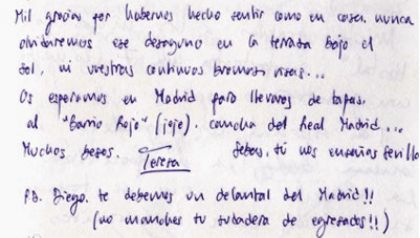 Mil gracias por habernos hecho sentir como en casa, nunca
olvidaremos ese desayuno en la terraza bajo el
sol, ni vuestras continuas bromas, risas...
Os esperamos en Madrid para llevaros de tapas,
al "Barrio Rojo" (jeje), cancha del Real Madrid...
Muchos besos. Teresa Sebas, tú nos enseñas Sevilla
P.D. Diego, te debemos un delantal del Madrid!!
(no manches tu sudadera de egresados!!)